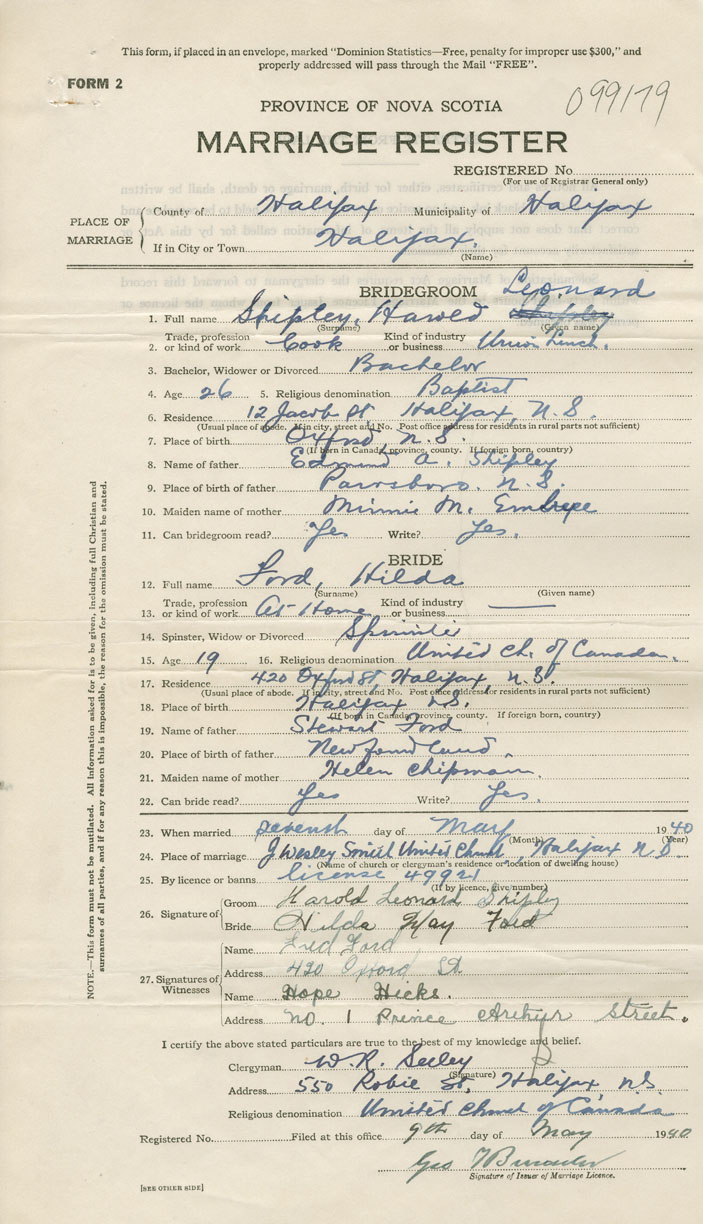 This form, if placed in an envelope, marked "Dominion Statistics—Free, penalty for improper use $300," and
properly addressed will pass through the Mail "FREE".
FORM 2
099179
PROVINCE OF NOVA SCOTIA
MARRIAGE REGISTER
REGISTERED No.
(For use of Registrar General only)
PLACE OF MARRIAGE
County of Halifax Municipality of Halifax
If in City or Town Halifax.
(Name)
BRIDEGROOM Leonard
1. Full name Shipley, Harold Shipley
(Surname) (Given name)
2. Trade, profession or kind of work Cook Kind of industry or business Union Lunch.
3. Bachelor, Widower or Divorced Bachelor
4. Age 26 5. Religious denomination Baptist
6. Residence 12 Jacob St. Halifax, N.S.
(Usual place of abode. If in city, street and No. Post office address for residents in rural parts not sufficient)
7. Place of birth Oxford, N.S.
(If born in Canada, province, county. If foreign born, country)
8. Name of father Edmund A. Shipley
9. Place of birth of father Parrsboro. N.S.
10. Maiden name of mother Minnie M. Embree
11. Can bridegroom read? Yes Write? Yes.
BRIDE
12. Full name Ford, Hilda
(Surname) (Given name)
13. Trade, profession or kind of work At Home Kind of industry or business —
14. Spinster, Widow or Divorced
15. Age 19 16. Religious denomination United Ch. of Canada.
17. Residence 420 Oxford St, Halifax, N.S.
(Usual place of abode. If in city, street and No. Post office address for residents in rural parts not sufficient)
18. Place of birth Halifax N.S.
(If born in Canada, province, county. If foreign born, country)
19. Name of father Stewart Ford
20. Place of birth of father Newfoundland.
21. Maiden name of mother Helen Chipman.
22. Can bride read? Yes Write? Yes.
23. When married seventh day of May 1940
(Month) (Year)
24. Place of marriage J Wesley Smith United Church, Halifax N.S.
(Name of church or clergyman's residence or location of dwelling house)
25. By licence or banns license 49921
(If by licence, give number)
26. Signature of
Groom Harold Leonard Shipley
Bride Hilda May Ford
27. Signatures of Witnesses
Name Fred Ford
Address 420 Oxford St
Name Hope Hicks.
Address No. 1 Prince Arthur Street.
I certify the above stated particulars are true to the best of my knowledge and belief.
Clergyman W. R. Seeley
(Signature)
Address 550 Robie St, Halifax N.S.
Religious denomination United Church of Canada
Registered No. Filed at this office 9th day of May 1940
Geo
Signature of Issuer of Marriage Licence.
[SEE OTHER SIDE]
NOTE.—This form must not be mutilated. All Information asked for is to be given, including full Christian and
surnames of all parties, and if for any reason this is impossible, the reason for the omission must be stated.